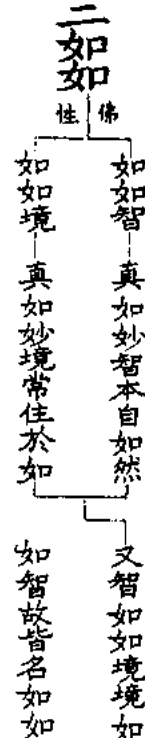 二如如
佛性
如如智—真如妙智本自如然
如如境—真如妙境常住於如
又智如如境境如
如智故皆名如如